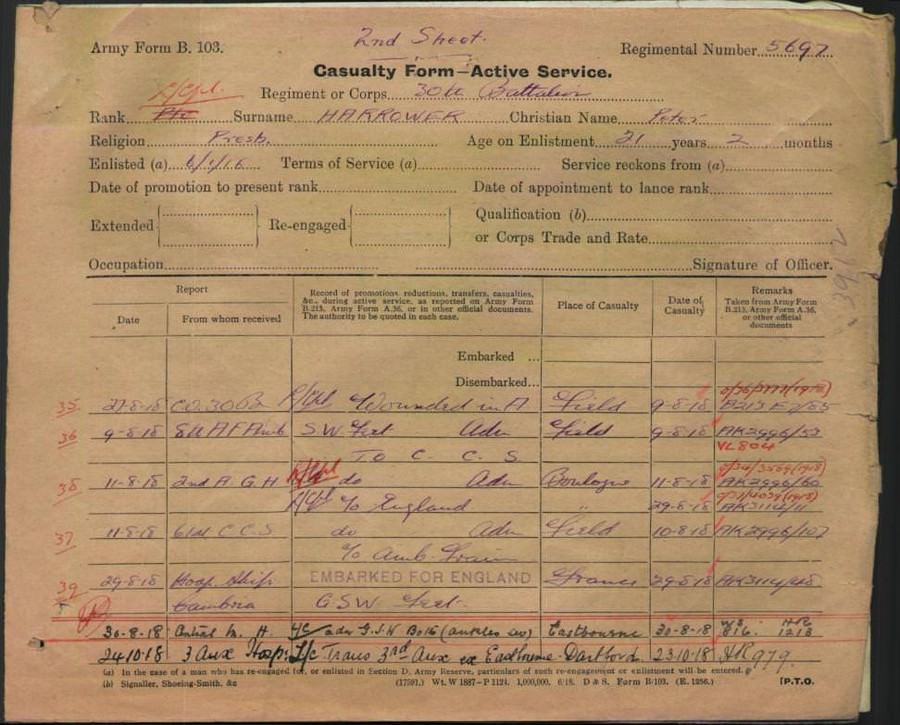 2nd Sheet.
Army Form B. 103.
Regimental Number 5697
Casualty Form—Active Service.
L/Cpl.
Regiment or Corps 30th Battalion
Rank Pte Surname HARROWER Christian Name Peter
Religion Presb. Age on Enlistment 21 years 2 months
Enlisted (a) 6/1/16 Terms of Service (a) Service reckons from (a)
Date of promotion to present rank Date of appointment to lance rank
Extended Re-engaged Qualification (b)
or Corps Trade and Rate
Occupation Signature of Officer.
Report
Date From whom received
Record of promotions reductions, transfers, casualties, &c., during active service, as reported on Army Form B.213, Army Form A.36, or in other official documents. The authority to be quoted in each case.
Place of Casualty
Date of Casualty
Remarks
Taken from Army Form B.213, Army Form A.36, or other official documents
Embarked ...
Disembarked...
35 27-8-18 C.O. 30 Bn L/Cpl Wounded in A Field 9-8-18
36 9-8-18 8th A F Amb S W Feet Adm Field 9-8-18 AK2996/53
VL804
To C. C. S
38 11-8-18 2nd A. G. H L/Cpl do Adm Boulogne 11-8-18 AK2996/60
L/Cpl To England " 29-8-18 AK3114/11
37 11-8-18 61st C C S do Adm Field 10-8-18 AK2996/107
To Amb. Train
39 29-8-18 Hosp. Ship EMBARKED FOR ENGLAND France 29-8-18 AK3114/48
Cambria G S W Feet.
30-8-18 Central M. H. L/C adm G.S.W Both (ankles sev) Eastbourne 30-8-18 816. 1218
24.10.18 3 Aux Hosp. L/c Trans 3rd Aux ex Eastbourne Dartford 23.10.18 HR979.
(a) In the case of a man who has re-engaged for, or enlisted in Section D, Army Reserve, particulars of such re-engagement or enlistment will be entered.
(b) Signaller, Shoeing-Smith, &c
(17591.) Wt. W 1887—P 1124. 1,000,000. 6/18. D & S. Form B/103. (E. 1256.) [P.T.O.